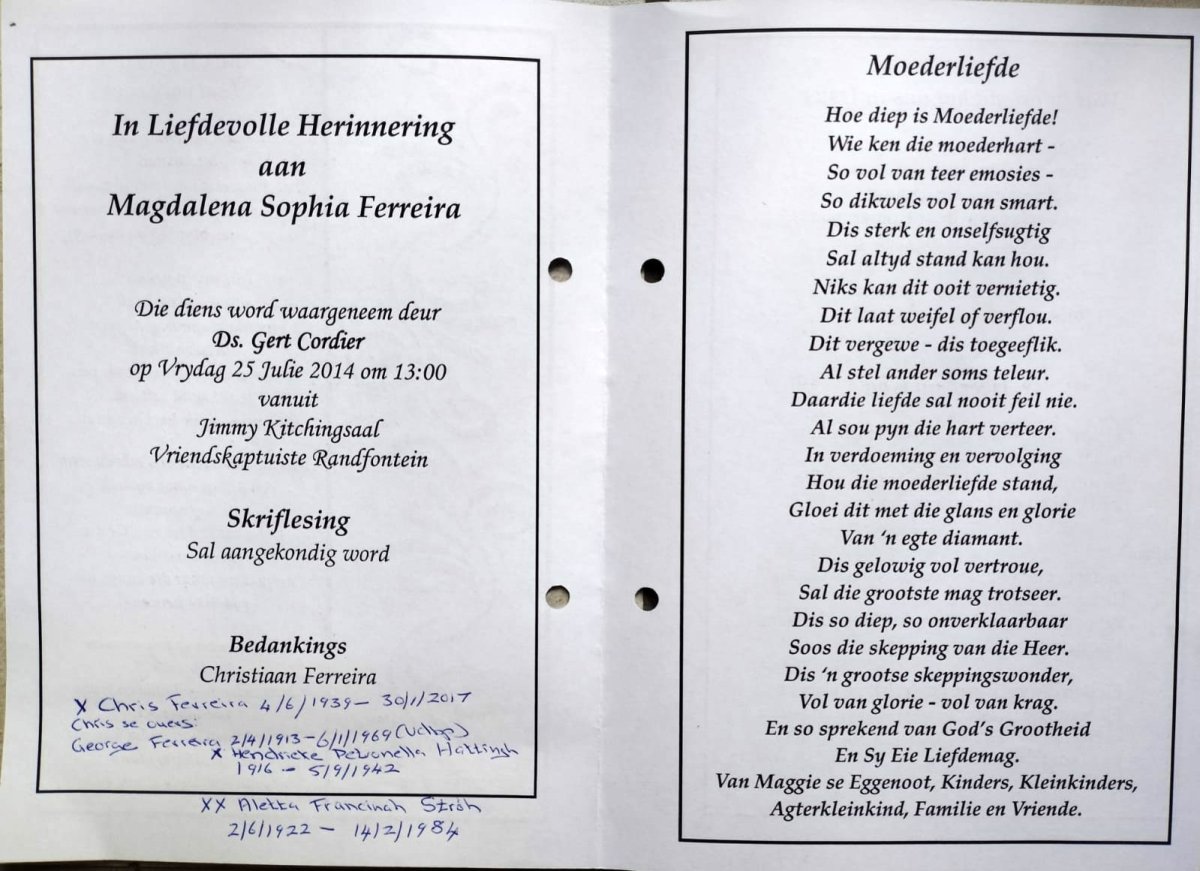 In Liefdevolle Herinnering
aan
Magdalena Sophia Ferreira
Die diens word waargeneem deur
Ds. Gert Cordier
op Vrydag 25 Julie 2014 om 13:00
vanuit
Jimmy Kitchingsaal
Vriendskaptuiste Randfontein
Skriflesing
Sal aangekondig word
Bedankings
Christiaan Ferreira
X Chris Ferreira 4/6/1939 - 30/1/2017
Chris se ouers:
George Ferreira 2/4/1913 - 6/1/1969
X Hendrieke Petronella Hattingh
1916 - 5/9/1942
XX Aletta Francinah Ströh
2/6/1922 - 14/2/1984
Moederliefde
Hoe diep is Moederliefde!
Wie ken die moederhart -
So vol van teer emosies -
So dikwels vol van smart.
Dis sterk en onselfsugtig
Sal altyd stand kan hou.
Niks kan dit ooit vernietig.
Dit laat weifel of verflou.
Dit vergewe - dis toegeeflik.
Al stel ander soms teleur.
Daardie liefde sal nooit feil nie.
Al sou pyn die hart verteer.
In verdoeming en vervolging
Hou die moederliefde stand,
Gloei dit met die glans en glorie
Van ‘n egte diamant.
Dis gelowig vol vertroue,
Sal die grootste mag trotseer.
Dis so diep, so onverklaarbaar
Soos die skepping van die Heer.
Dis ‘n grootse skeppingswonder,
Vol van glorie - vol van krag.
En so sprekend van God’s Grootheid
En Sy Eie Liefdemag.
Van Maggie se Eggenoot, Kinders, Kleinkinders,
Agterkleinkind, Familie en Vriende.